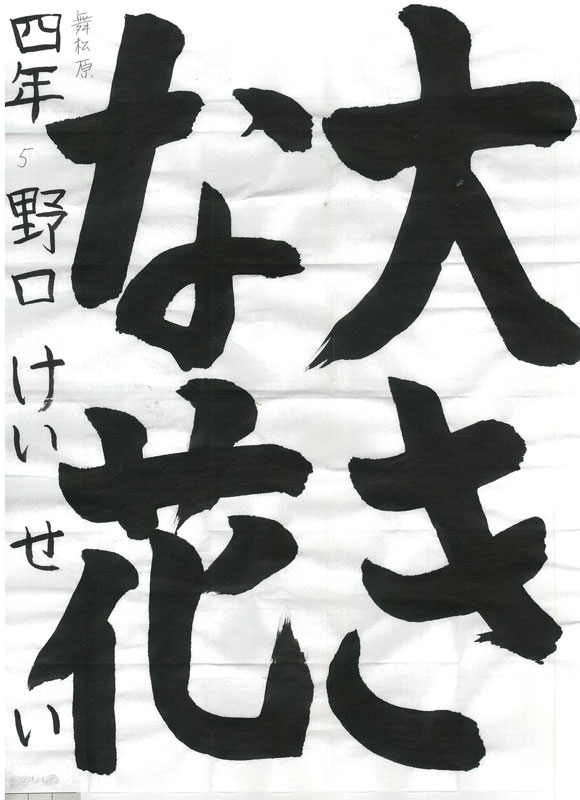 大き
な花
舞松原
四年 5 野口けいせい